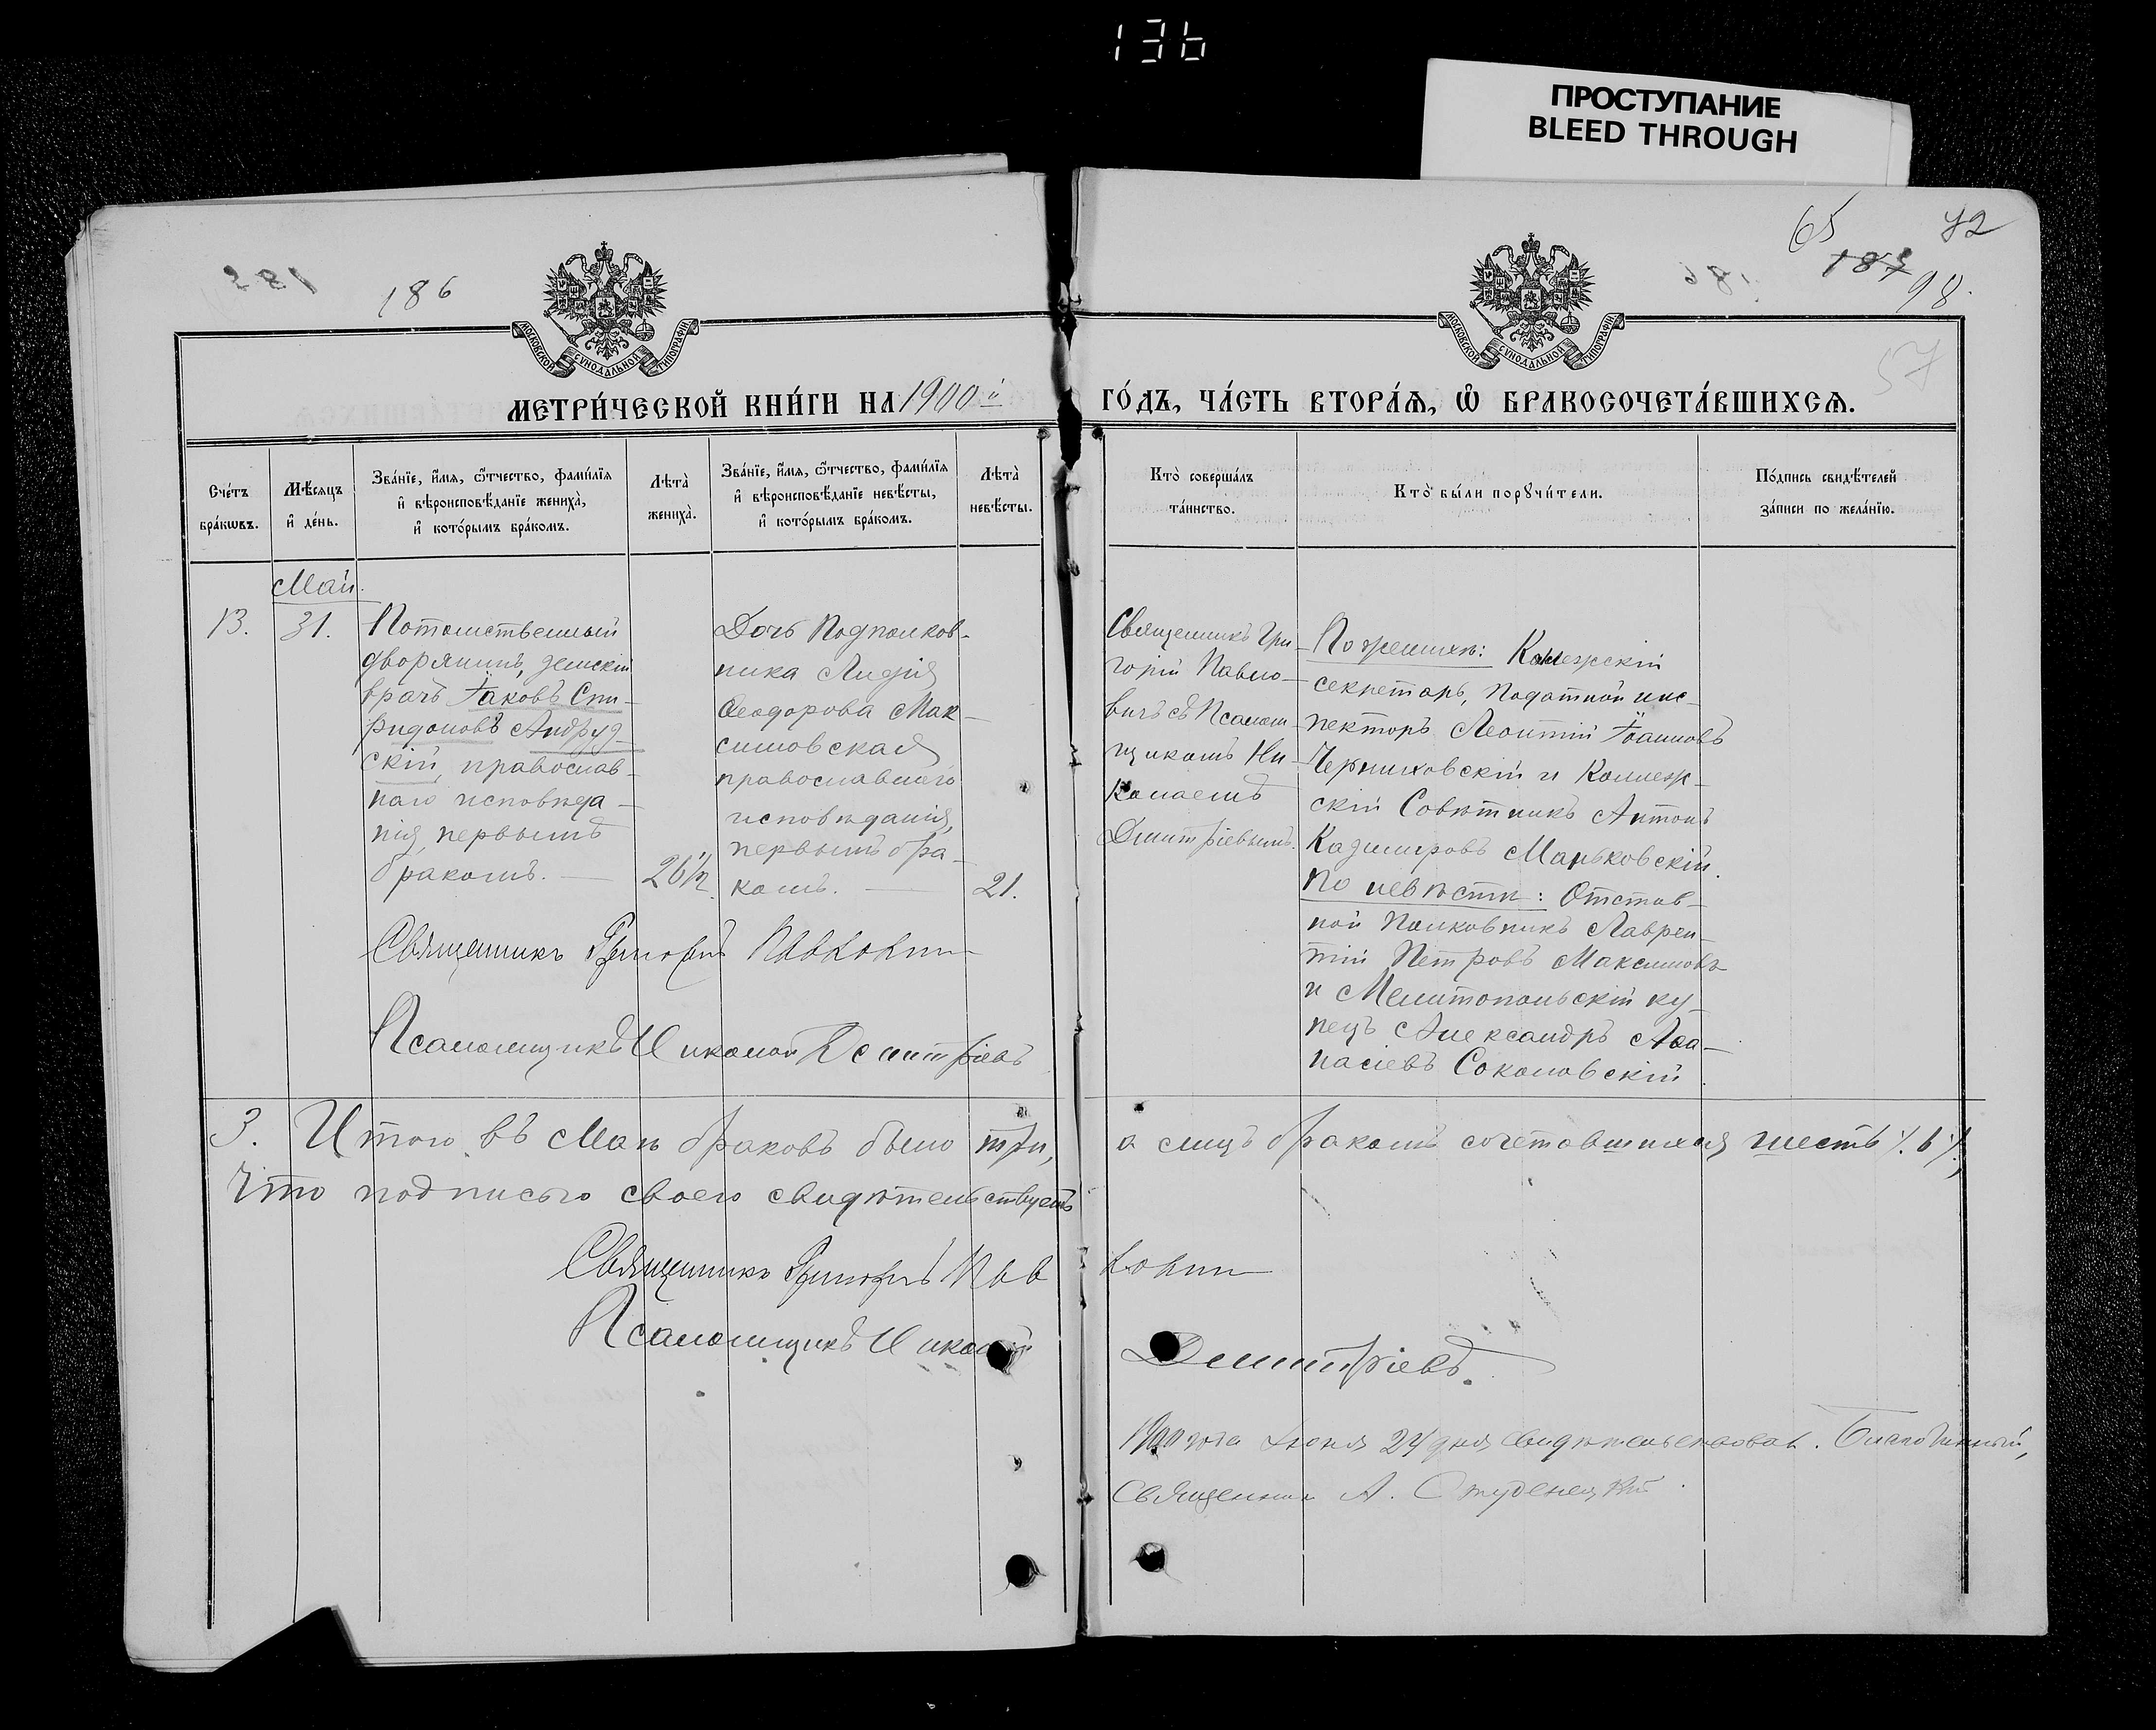 136
ПРОСТУПАНИЕ
BLEED THROUGH
186
65
72
187
98.
57
МОСКОВСКОЙ СѴНОДАЛЬНОЙ ТИПОГРАФІИ
МОСКОВСКОЙ СѴНОДАЛЬНОЙ ТИПОГРАФІИ
МЕТРИ́ЧЕСКОЙ КНИ́ГИ НА 1900й
ГО́ДЪ, ЧА́СТЬ ВТОРА́Ѧ, Ѽ БРАКОСОЧЕТА́ВШИХСѦ.
Сче́тъ
бра́кѡвъ.
Мѣ́сяцъ
и҆ де́нь.
Зва́нїе, и҆́мя, ѻ҆́тчество, фами́лїя
и҆ вѣроисповѣ́данїе жениха̀,
и҆ кото́рымъ бра́комъ.
Лѣта̀
жениха̀.
Зва́нїе, и҆́мя, ѻ҆́тчество, фами́лїя
и҆ вѣроисповѣ́данїе невѣ́сты,
и҆ кото́рымъ бра́комъ.
Лѣта̀
невѣ́сты.
Кто̀ соверша́лъ
та́инство.
Кто̀ бы́ли порꙋчи́тели.
По́дпись свидѣ́телей
за́писи по жела́нїю.
Май.
13.
31.
Потомственный
дворянинъ, земскій
врачъ Іаковъ Спи-
ридоновъ Андруд-
скій, православ-
наго исповѣда-
нія, первымъ
бракомъ.
26½
Дочь Подполков-
ника Лидія
Ѳеодорова Мак-
симовская
православнаго
исповѣданія,
первымъ бра-
комъ.
21.
Священникъ Гри-
горій Павло-
вичъ съ Псалом-
щикомъ Ни-
колаемъ
Дмитріевымъ.
По женихѣ: Коллежскій
секретарь, податной инс-
пекторъ Леонтій Іоанновъ
Черниховскій и Коллеж-
скій Совѣтникъ Антонъ
Казимировъ Маньковскій.
по невѣстѣ: Отстав-
ной Полковникъ Лаврен-
тій Петровъ Максимовъ
и Мелитопольскій ку-
пецъ Александръ Аѳа-
насіевъ Соколовскій.
Священникъ Григорій
Псаломщикъ Николай Дмитріевъ
3. Итого въ Маѣ браковъ было три, а лицъ бракомъ сочетавшихся шесть ./.6./.,
Что подписью своею свидѣтельствуемъ
Священникъ Григорій
Псаломщикъ Николай Дмитріевъ.
1900 года Іюня 24 дня свидѣтельствовалъ. Благочинный,
Священникъ А. Студенецкій.